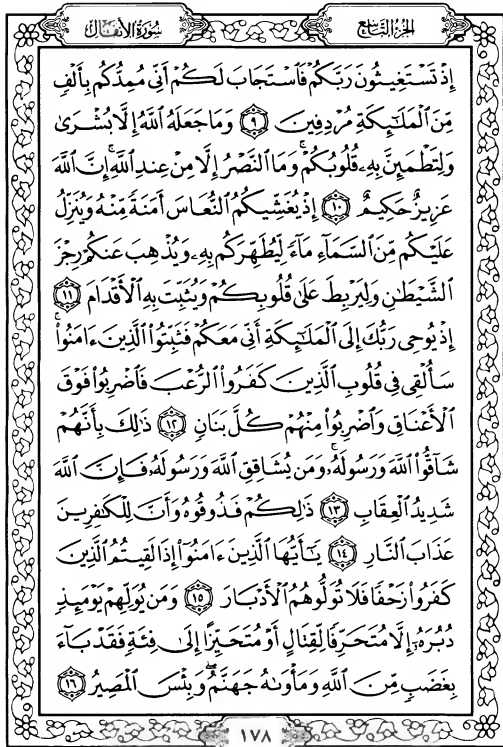 سُورَةُ الأَنفَال
الجُزْءُ التَّاسِع
إِذْ تَسْتَغِيثُونَ رَبَّكُمْ فَٱسْتَجَابَ لَكُمْ أَنِّي مُمِدُّكُم بِأَلْفٍ
مِّنَ ٱلْمَلَٰٓئِكَةِ مُرْدِفِينَ ٩ وَمَا جَعَلَهُ ٱللَّهُ إِلَّا بُشْرَىٰ
وَلِتَطْمَئِنَّ بِهِۦ قُلُوبُكُمْ ۚ وَمَا ٱلنَّصْرُ إِلَّا مِنْ عِندِ ٱللَّهِ ۚ إِنَّ ٱللَّهَ
عَزِيزٌ حَكِيمٌ ١٠ إِذْ يُغَشِّيكُمُ ٱلنُّعَاسَ أَمَنَةً مِّنْهُ وَيُنَزِّلُ
عَلَيْكُم مِّنَ ٱلسَّمَآءِ مَآءً لِّيُطَهِّرَكُم بِهِۦ وَيُذْهِبَ عَنكُمْ رِجْزَ
ٱلشَّيْطَٰنِ وَلِيَرْبِطَ عَلَىٰ قُلُوبِكُمْ وَيُثَبِّتَ بِهِ ٱلْأَقْدَامَ ١١
إِذْ يُوحِي رَبُّكَ إِلَى ٱلْمَلَٰٓئِكَةِ أَنِّي مَعَكُمْ فَثَبِّتُوا۟ ٱلَّذِينَ ءَامَنُوا۟ ۚ
سَأُلْقِي فِي قُلُوبِ ٱلَّذِينَ كَفَرُوا۟ ٱلرُّعْبَ فَٱضْرِبُوا۟ فَوْقَ
ٱلْأَعْنَاقِ وَٱضْرِبُوا۟ مِنْهُمْ كُلَّ بَنَانٍ ١٢ ذَٰلِكَ بِأَنَّهُمْ
شَآقُّوا۟ ٱللَّهَ وَرَسُولَهُۥ ۚ وَمَن يُشَاقِقِ ٱللَّهَ وَرَسُولَهُۥ فَإِنَّ ٱللَّهَ
شَدِيدُ ٱلْعِقَابِ ١٣ ذَٰلِكُمْ فَذُوقُوهُ وَأَنَّ لِلْكَٰفِرِينَ
عَذَابَ ٱلنَّارِ ١٤ يَٰٓأَيُّهَا ٱلَّذِينَ ءَامَنُوٓا۟ إِذَا لَقِيتُمُ ٱلَّذِينَ
كَفَرُوا۟ زَحْفًا فَلَا تُوَلُّوهُمُ ٱلْأَدْبَارَ ١٥ وَمَن يُوَلِّهِمْ يَوْمَئِذٍ
دُبُرَهُۥٓ إِلَّا مُتَحَرِّفًا لِّقِتَالٍ أَوْ مُتَحَيِّزًا إِلَىٰ فِئَةٍ فَقَدْ بَآءَ
بِغَضَبٍ مِّنَ ٱللَّهِ وَمَأْوَىٰهُ جَهَنَّمُ ۖ وَبِئْسَ ٱلْمَصِيرُ ١٦
١٧٨